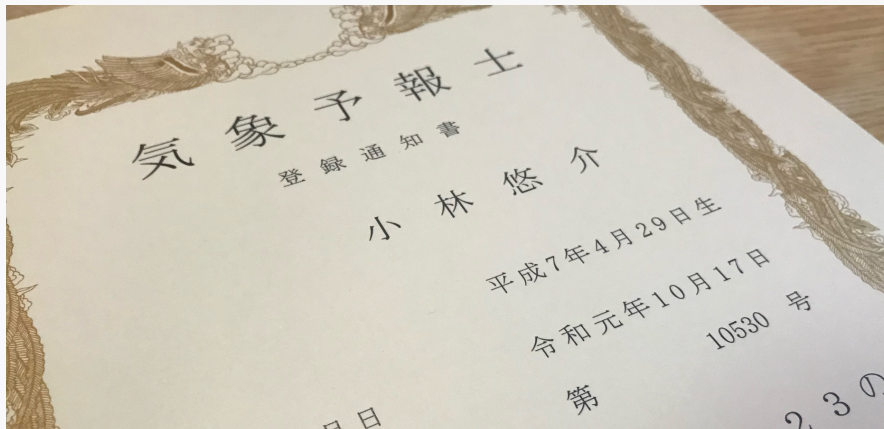 気象予報士
登録通知書
小林悠介
平成7年4月29日生
令和元年10月17日
第 10530 号
月日
23の